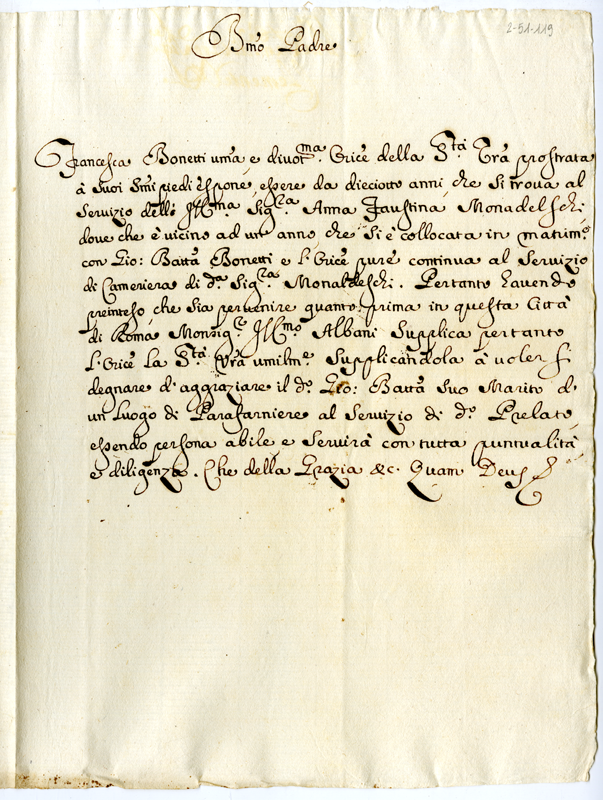 2-51-119
Bmo Padre
Francesca Bonetti uma e divotma. Orice della Sta Vra prostrata
à suoi Smi piedi espone, essere da dieciotto anni, che si trova al
servizio dell' Illma Sigra Anna Faustina Monadelschi
dove che è vicino ad un' anno che si è collocata in matrime
con Gio: Batta Bonetti e l'Orice pure continua al servizio
di Cameriera di da Sigra Monaldeschi. Pertanto havendo
preinteso, che sia per venire quanto prima in questa Città
di Roma Monsigr Illmo Albani supplica pertanto
l'Orice la Sta Vra umilme supplicandola à voler si
degnare d'aggraziare il do Gio: Batta suo Marito di
un luogo di Parafarniere al servizio di do Prelato
essendo persona abile e servirà con tutta puntualità
e diligenza. Che della Grazia &c. Quam Deus